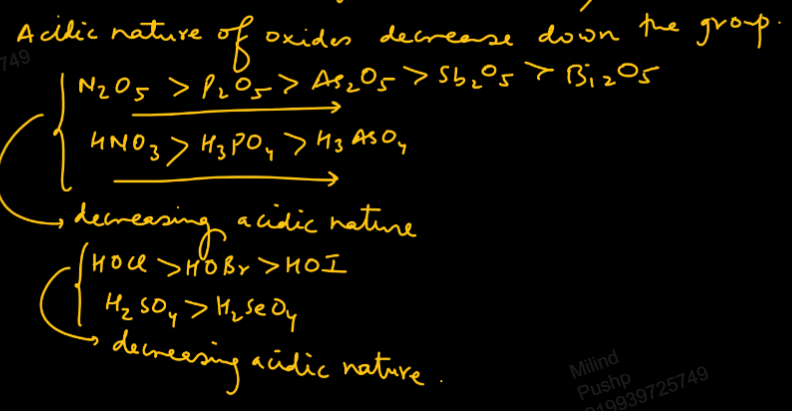 Acidic nature of oxides decrease down the group.
749
N₂O₅ > P₂O₅ > As₂O₅ > Sb₂O₅ > Bi₂O₅
HNO₃ > H₃PO₄ > H₃AsO₄
decreasing acidic nature
HOCl > HOBr > HOI
H₂SO₄ > H₂SeO₄
decreasing acidic nature.
Milind
Pushp
919939725749